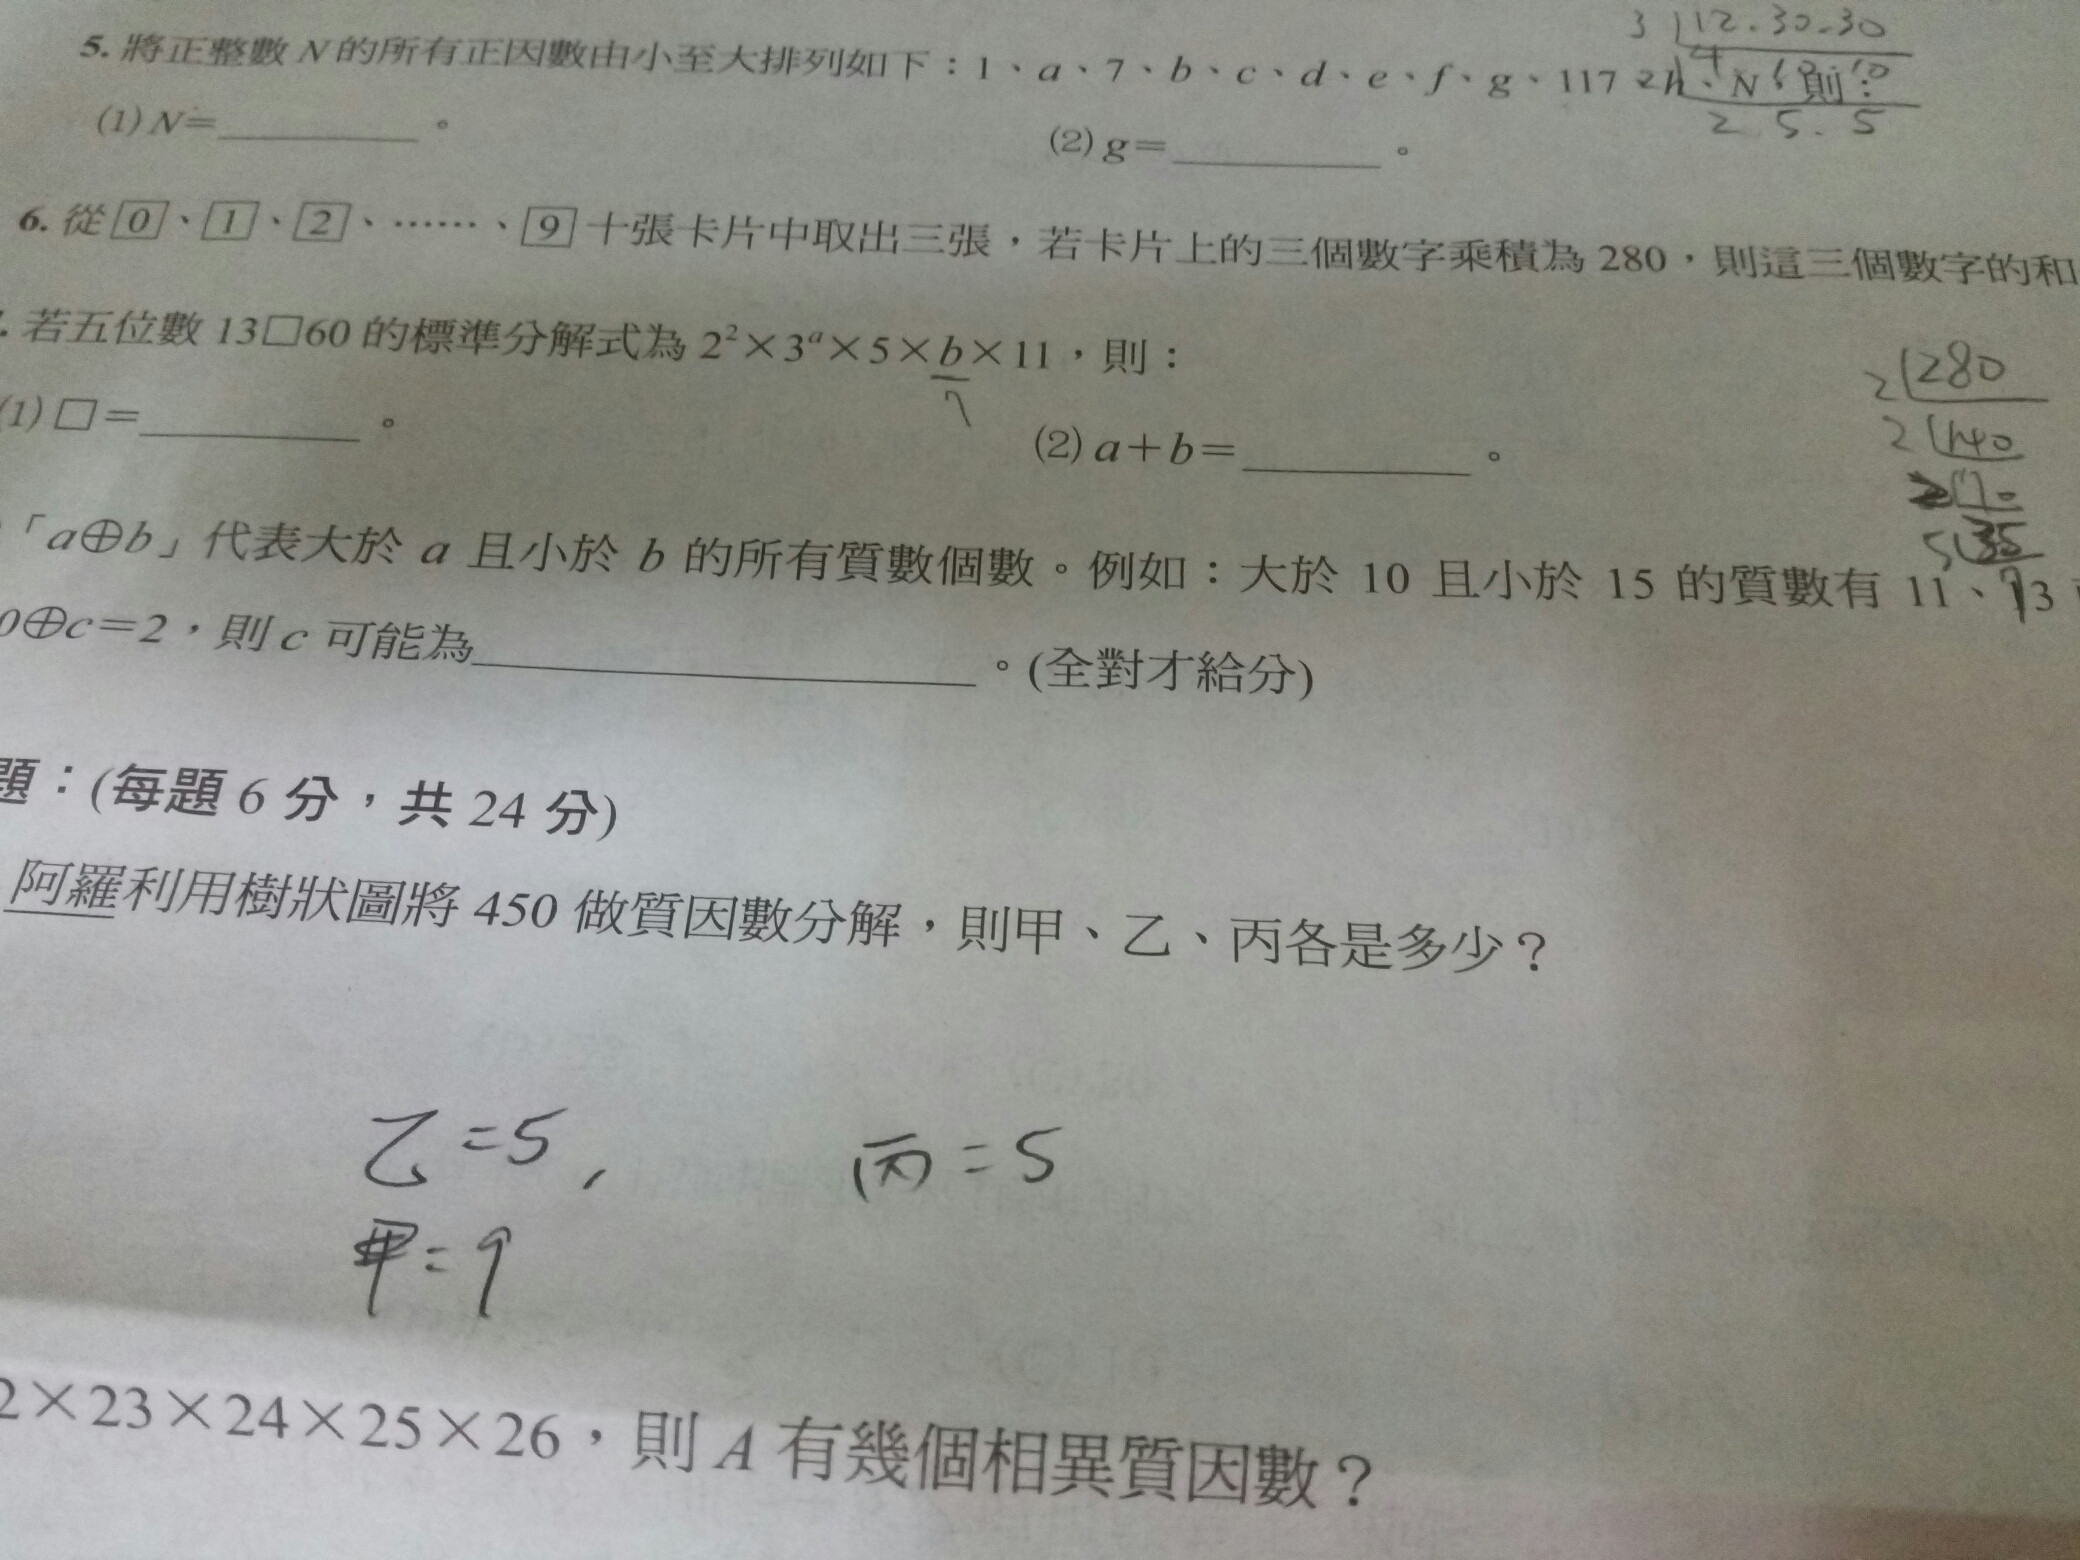 3 12.30.30
5. 將正整數 N 的所有正因數由小至大排列如下：1、a、7、b、c、d、e、f、g、117、h、N，則：
2 4 10 10
2 5. 5
(1) N＝＿＿＿＿。 (2) g＝＿＿＿＿。
6. 從 0、1、2、……、9 十張卡片中取出三張，若卡片上的三個數字乘積為 280，則這三個數字的和
. 若五位數 13□60 的標準分解式為 2²×3ᵃ×5×b×11，則：
7
2 280
(1) □＝＿＿＿＿。 (2) a＋b＝＿＿＿＿。
2 140
2 70
5 35
7
「a⊕b」代表大於 a 且小於 b 的所有質數個數。例如：大於 10 且小於 15 的質數有 11、13
0⊕c＝2，則 c 可能為＿＿＿＿。(全對才給分)
題：(每題 6 分，共 24 分)
阿羅利用樹狀圖將 450 做質因數分解，則甲、乙、丙各是多少？
乙=5, 丙=5
甲=9
2×23×24×25×26，則 A 有幾個相異質因數？